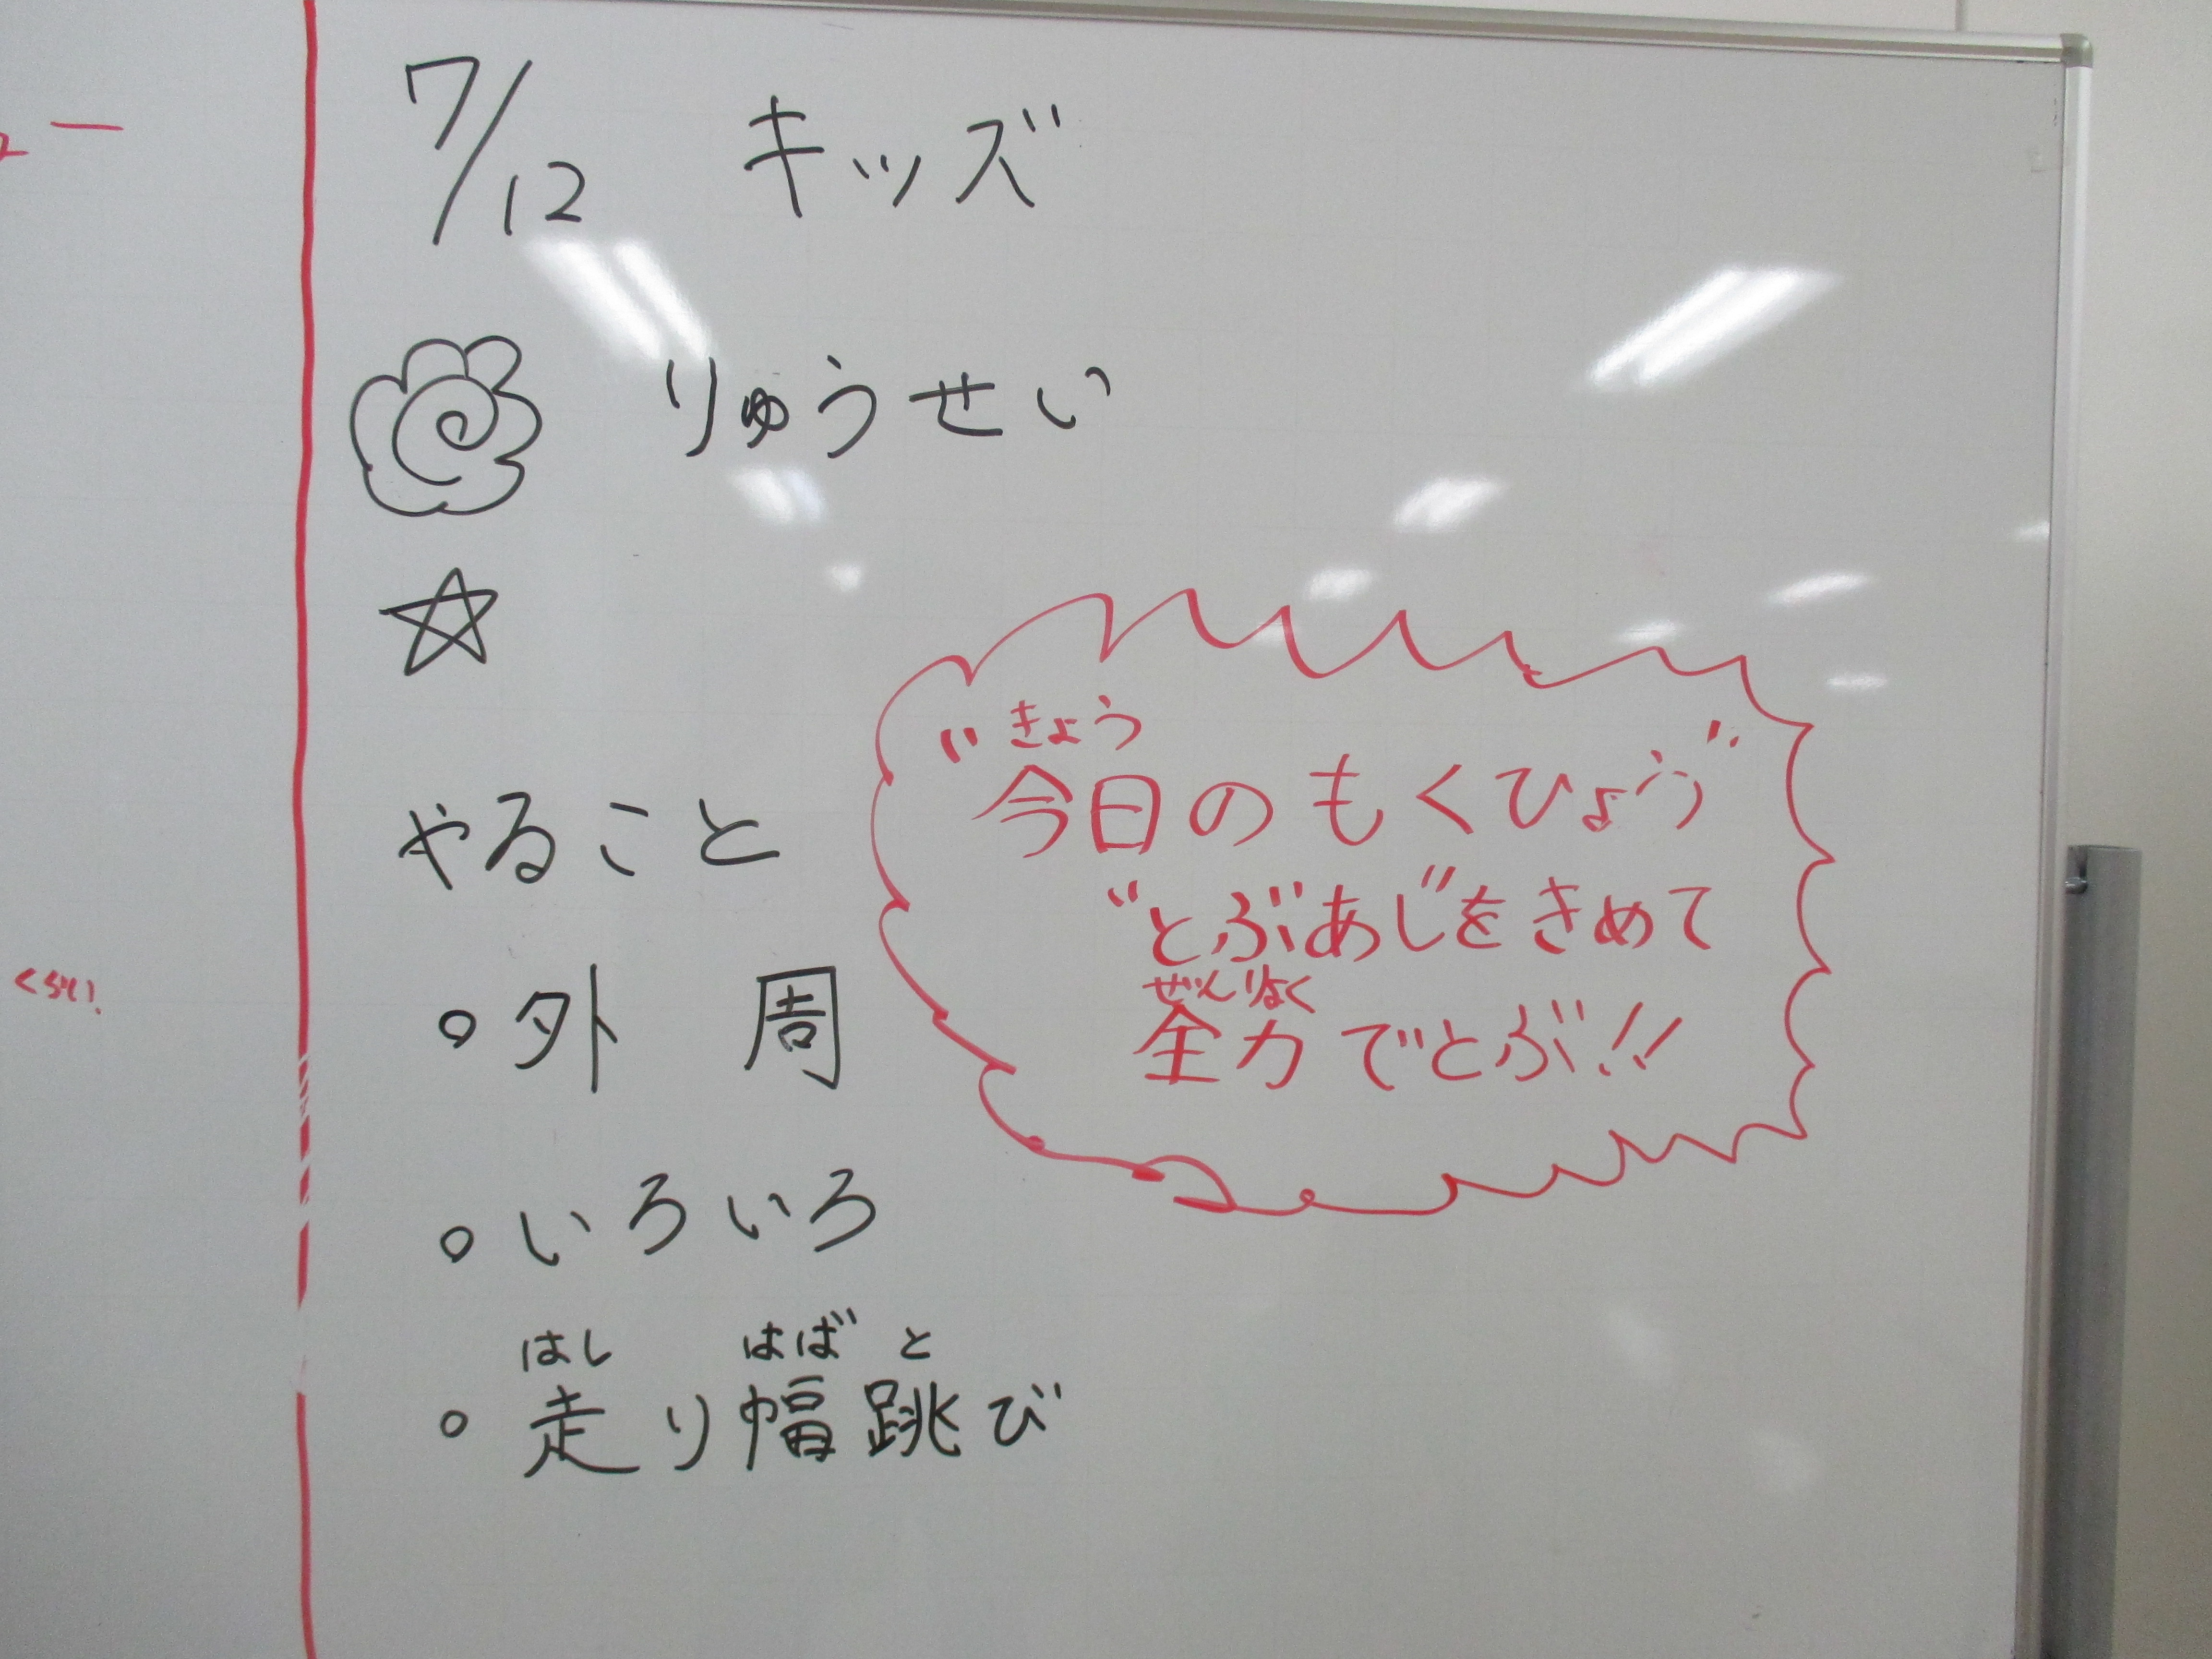 7/12 キッズ
りゅうせい
やること
きょう
"今日のもくひょう"
"とぶあし"をきめて
ぜんりょく
全力でとぶ!!
。外周
。いろいろ
はし はば と
。走り幅跳び
くらい!